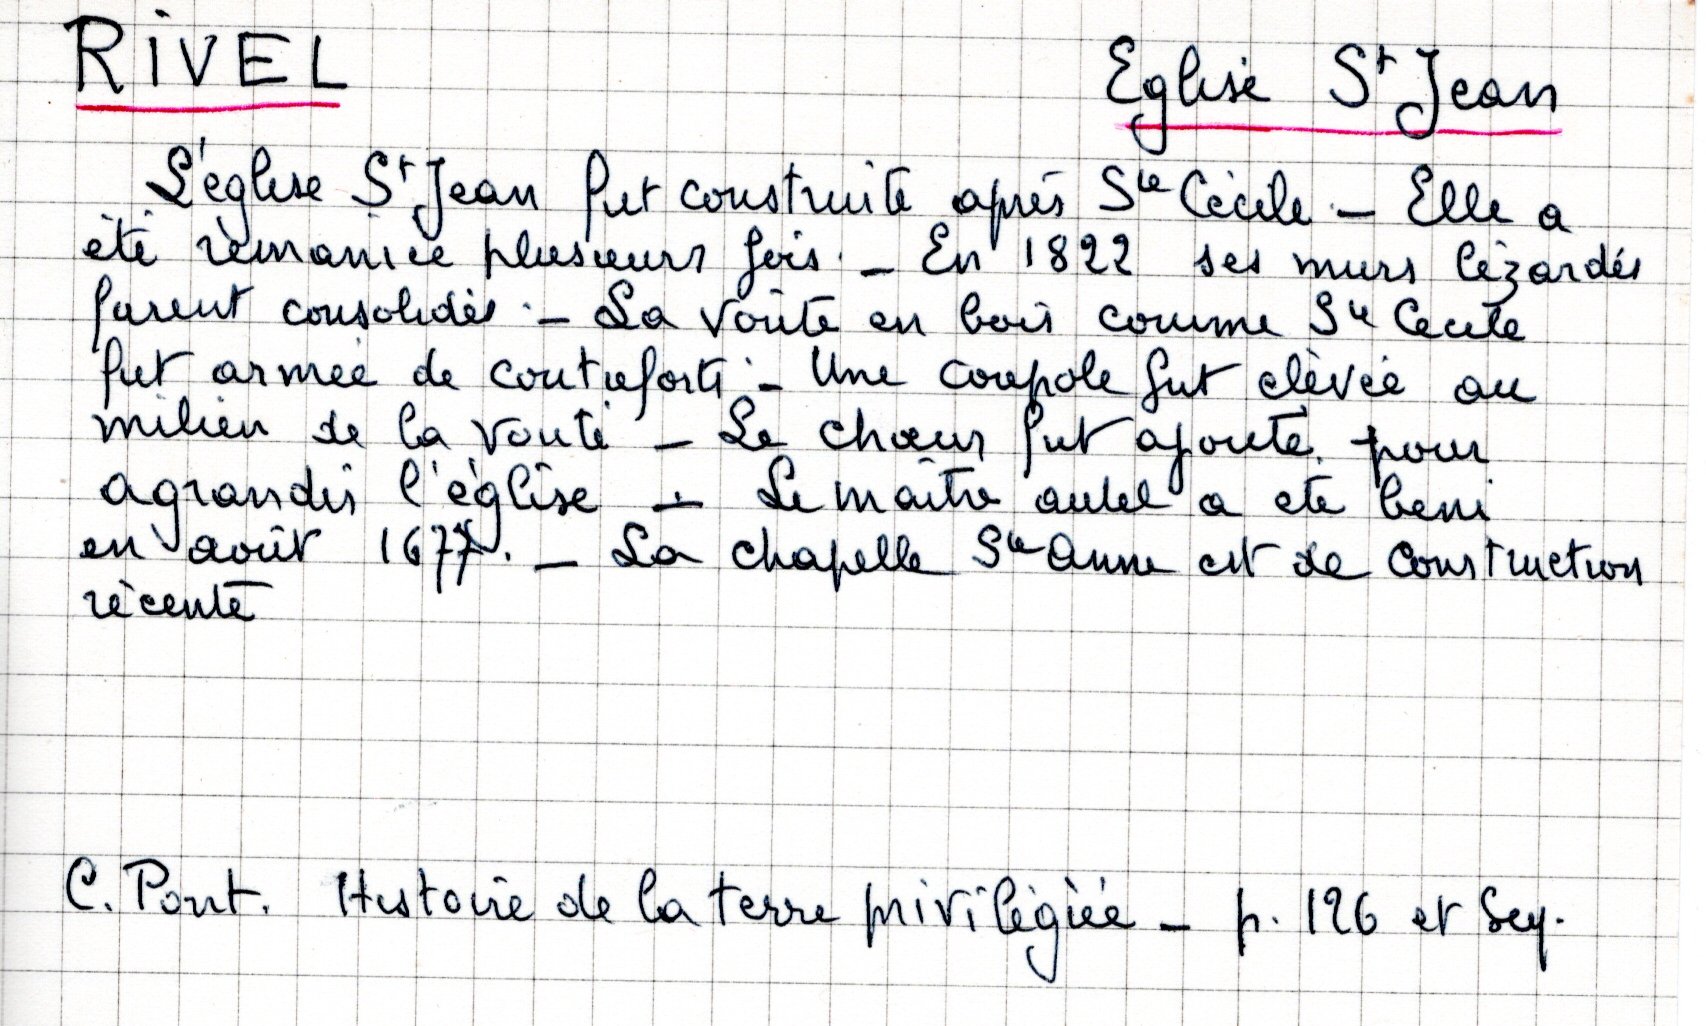 RIVEL Eglise St Jean
L'église St Jean fut construite après Ste Cécile - Elle a
été remaniée plusieurs fois. - En 1822 ses murs lézardés
furent consolidés. - La voûte en bois comme Ste Cecile
fut armée de contreforts. - Une coupole fut élevée au
milieu de la voute - Le chœur fut ajouté pour
agrandir l'église - Le maître autel a été beni
en août 1677. - La chapelle Ste Anne est de construction
récente
C. Pont. Histoire de la terre privilégiée - p. 126 et seq.